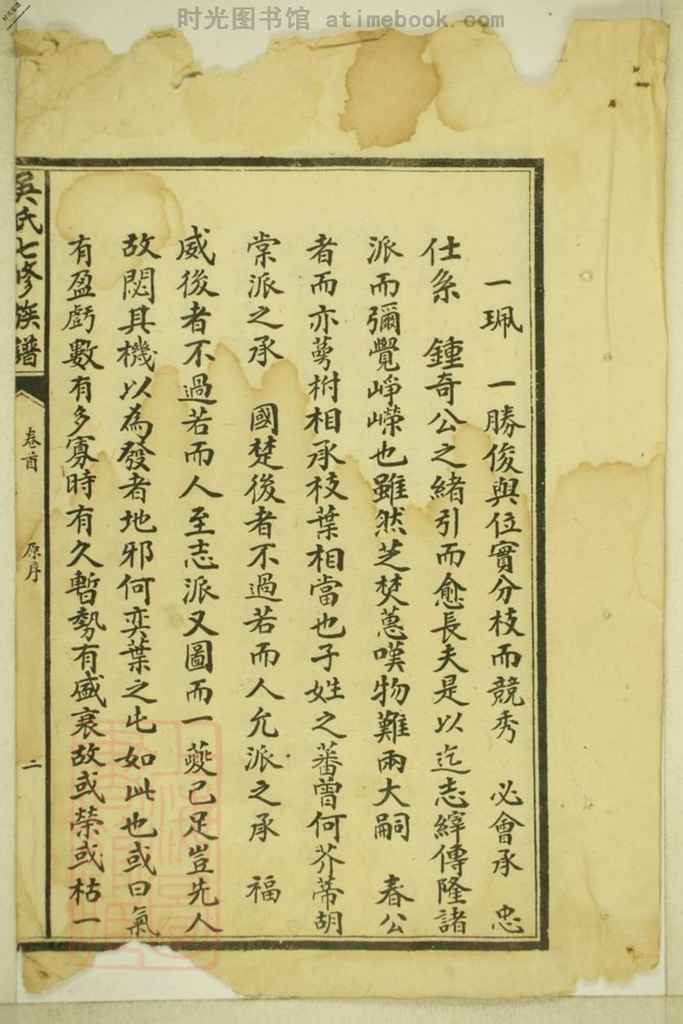 时光图书馆 atimebook.com
一珮 一勝俊與位實分枝而競秀 必會承 忠
仕糸 鍾奇公之緒引而愈長夫是以迄志繹傳隆諸
派而彌覺崢嶸也雖然芝焚蕙嘆物難兩大嗣 春公
者而亦萼柎相承枝葉相當也子姓之蕃曾何芥蒂胡
棠派之承 國楚後者不過若而人允派之承 福
威後者不過若而人至志派又圖而一夔已足豈先人
故閟其機以為發者地邪何奕葉之屯如此也或曰氣
有盈虧數有多寡時有久暫勢有盛衰故或榮或枯一
吳氏七修族譜
卷首 原序 二